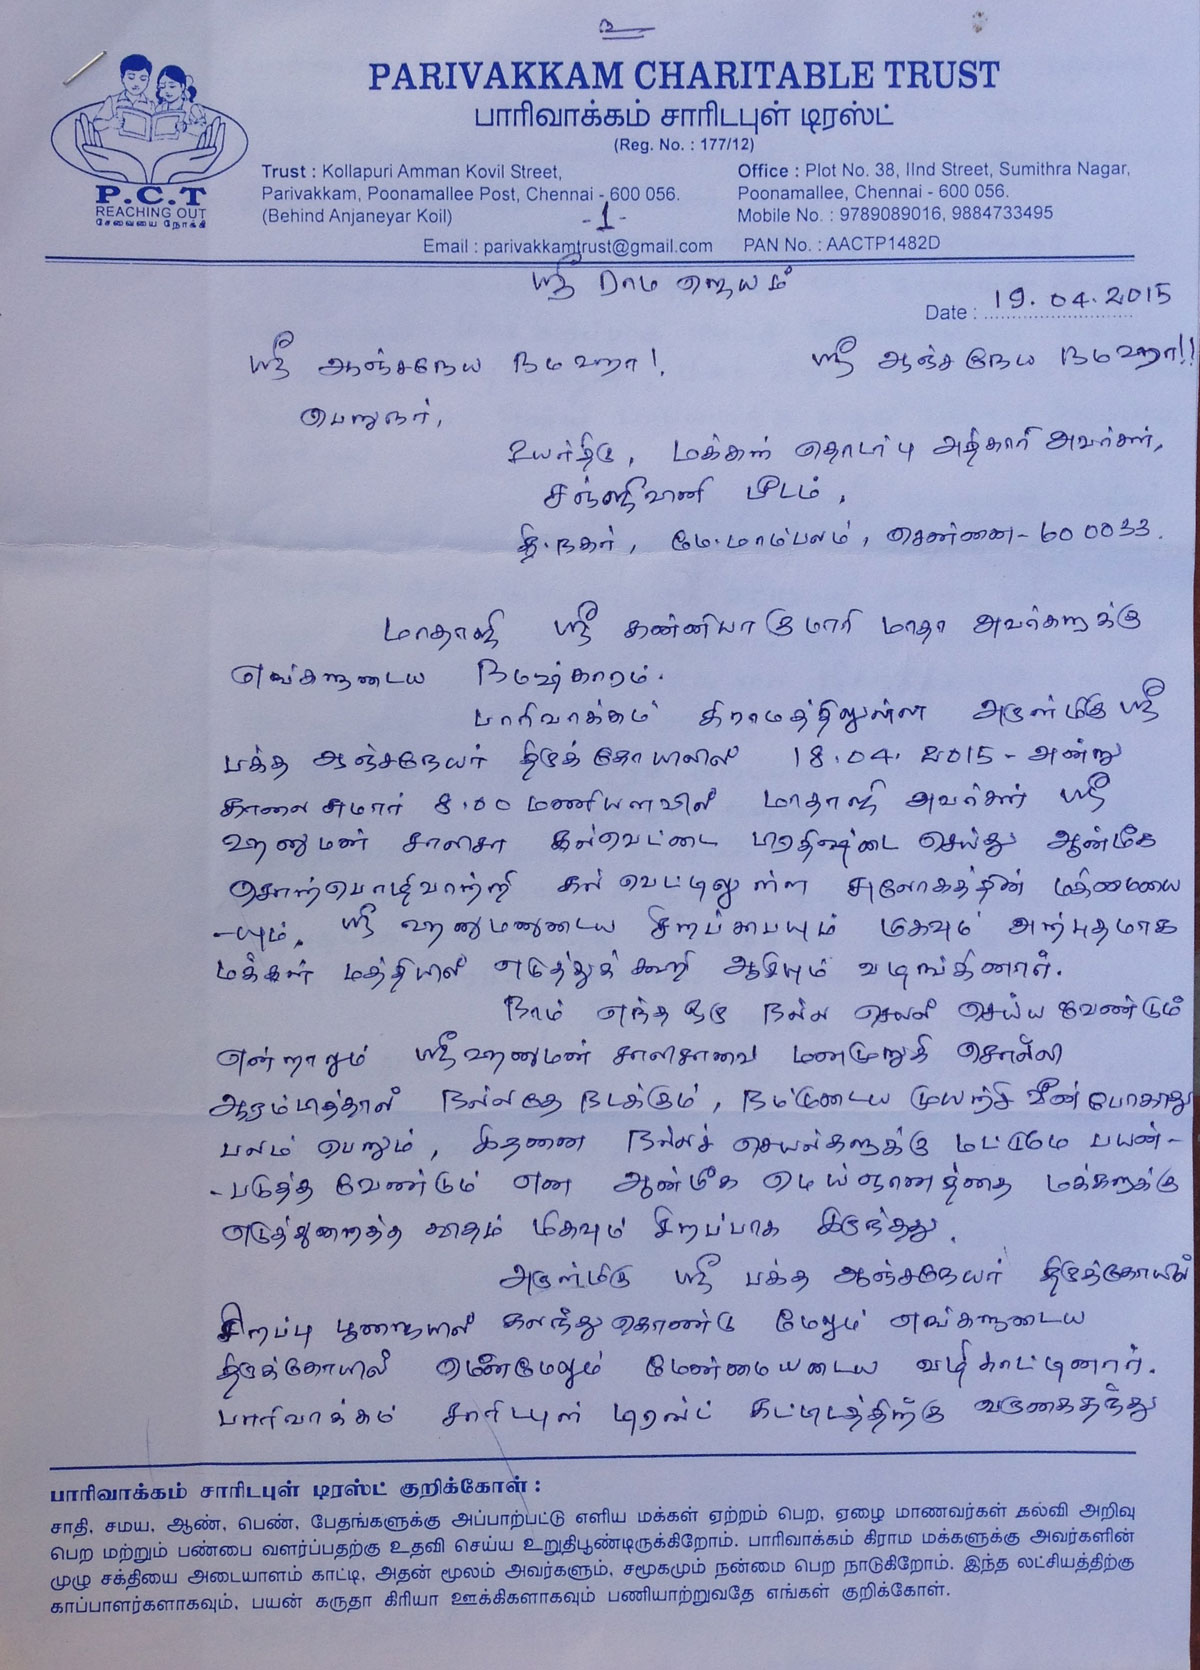 உ
PARIVAKKAM CHARITABLE TRUST
பாரிவாக்கம் சாரிடபுள் டிரஸ்ட்
(Reg. No. : 177/12)
P.C.T
REACHING OUT
சேவையை நோக்கி
Trust : Kollapuri Amman Kovil Street,
Parivakkam, Poonamallee Post, Chennai - 600 056.
(Behind Anjaneyar Koil)
Office : Plot No. 38, IInd Street, Sumithra Nagar,
Poonamallee, Chennai - 600 056.
Mobile No. : 9789089016, 9884733495
-1-
Email : parivakkamtrust@gmail.com PAN No. : AACTP1482D
ஸ்ரீ ராம ஜெயம்
Date : 19.04.2015
ஸ்ரீ ஆஞ்சநேய நமஹா! ஸ்ரீ ஆஞ்சநேய நமஹா!!
பெறுநர்,
உயர்திரு, மக்கள் தொடர்பு அதிகாரி அவர்கள்,
சஞ்ஜீவானி பீடம்,
தி.நகர், மே.மாம்பலம், சென்னை-600033.
மாதாஜி ஸ்ரீ கன்னியாகுமாரி மாதா அவர்களுக்கு
எங்களுடைய நமஷ்காரம்.
பாரிவாக்கம் கிராமத்திலுள்ள அருள்மிகு ஸ்ரீ
பக்த ஆஞ்சநேயர் திருக்கோயிலில் 18.04.2015-அன்று
காலை சுமார் 8.00 மணியளவில் மாதாஜி அவர்கள் ஸ்ரீ
ஹனுமன் சாலிசா கல்வெட்டை பிரதிஷ்டை செய்து ஆன்மீக
சொற்பொழிவாற்றி கல்வெட்டிலுள்ள சுலோகத்தின் மகிமையை
-யும், ஸ்ரீ ஹனுமனுடைய சிறப்பையும் மிகவும் அற்புதமாக
மக்கள் மத்தியில் எடுத்துக்கூறி ஆசியும் வழங்கினார்.
நாம் எந்த ஒரு நல்ல செயல் செய்ய வேண்டும்
என்றாலும் ஸ்ரீ ஹனுமன் சாலிசாவை மனமுறுகி சொல்லி
ஆரம்பித்தால் நல்லதே நடக்கும், நம்முடைய முயற்சி வீண்போகாது
பலம் பெறும், இதனை நல்லச் செயல்களுக்கு மட்டுமே பயன்-
-படுத்த வேண்டும் என ஆன்மீக மெய்ஞானத்தை மக்களுக்கு
எடுத்துரைத்த விதம் மிகவும் சிறப்பாக இருந்தது.
அருள்மிகு ஸ்ரீ பக்த ஆஞ்சநேயர் திருக்கோயில்
சிறப்பு பூஜையில் கலந்துகொண்டு மேலும் எங்களுடைய
திருக்கோயில் மென்மேலும் மேன்மையடைய வழிகாட்டினார்.
பாரிவாக்கம் சாரிடபுள் டிரஸ்ட் கட்டிடத்திற்கு வருகைதந்து
பாரிவாக்கம் சாரிடபுள் டிரஸ்ட் குறிக்கோள் :
சாதி, சமய, ஆண், பெண், பேதங்களுக்கு அப்பாற்பட்டு எளிய மக்கள் ஏற்றம் பெற, ஏழை மாணவர்கள் கல்வி அறிவு
பெற மற்றும் பண்பை வளர்ப்பதற்கு உதவி செய்ய உறுதிபூண்டிருக்கிறோம். பாரிவாக்கம் கிராம மக்களுக்கு அவர்களின்
முழு சக்தியை அடையாளம் காட்டி, அதன் மூலம் அவர்களும், சமூகமும் நன்மை பெற நாடுகிறோம். இந்த லட்சியத்திற்கு
காப்பாளர்களாகவும், பயன் கருதா கிரியா ஊக்கிகளாகவும் பணியாற்றுவதே எங்கள் குறிக்கோள்.